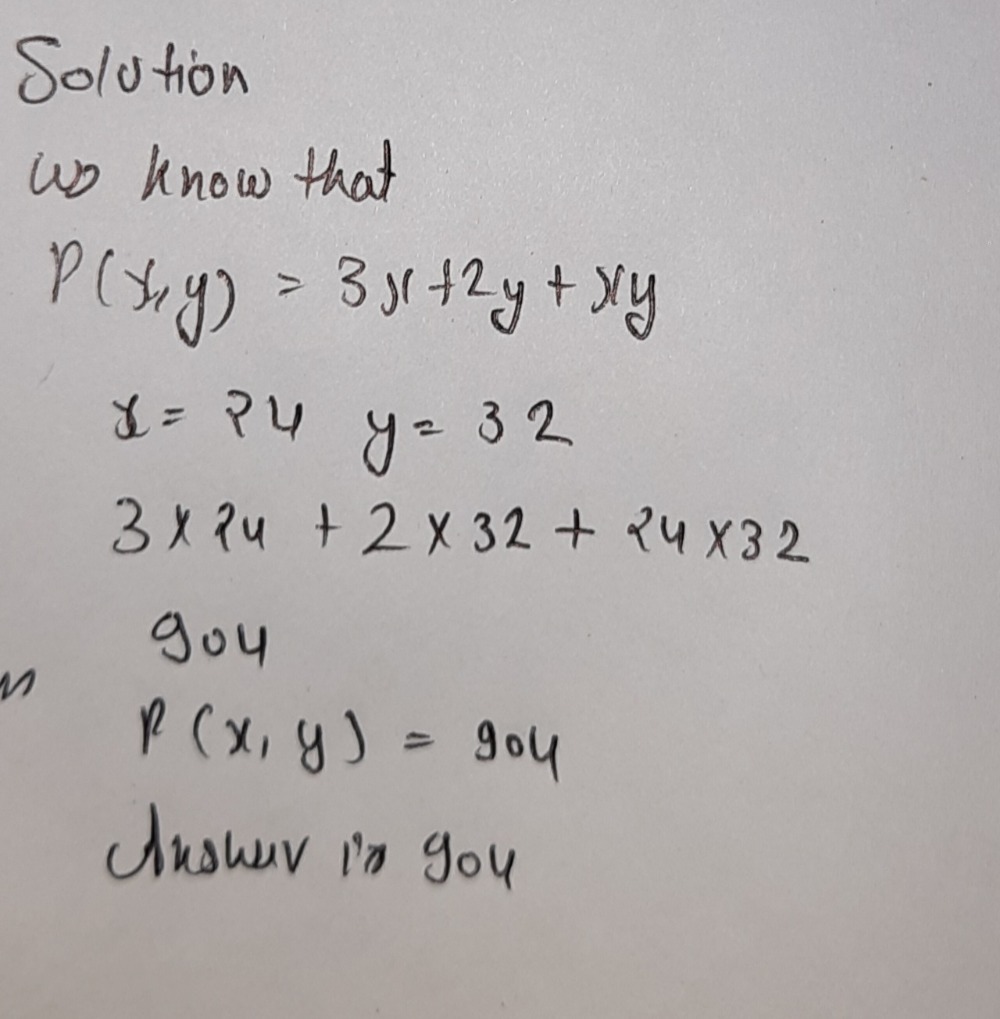 Solution
we know that
P(x,y) = 3x+2y+xy
x= 24 y= 32
3 x 24 + 2 x 32 + 24 x 32
904
P (x, y) = 904
Answer is 904